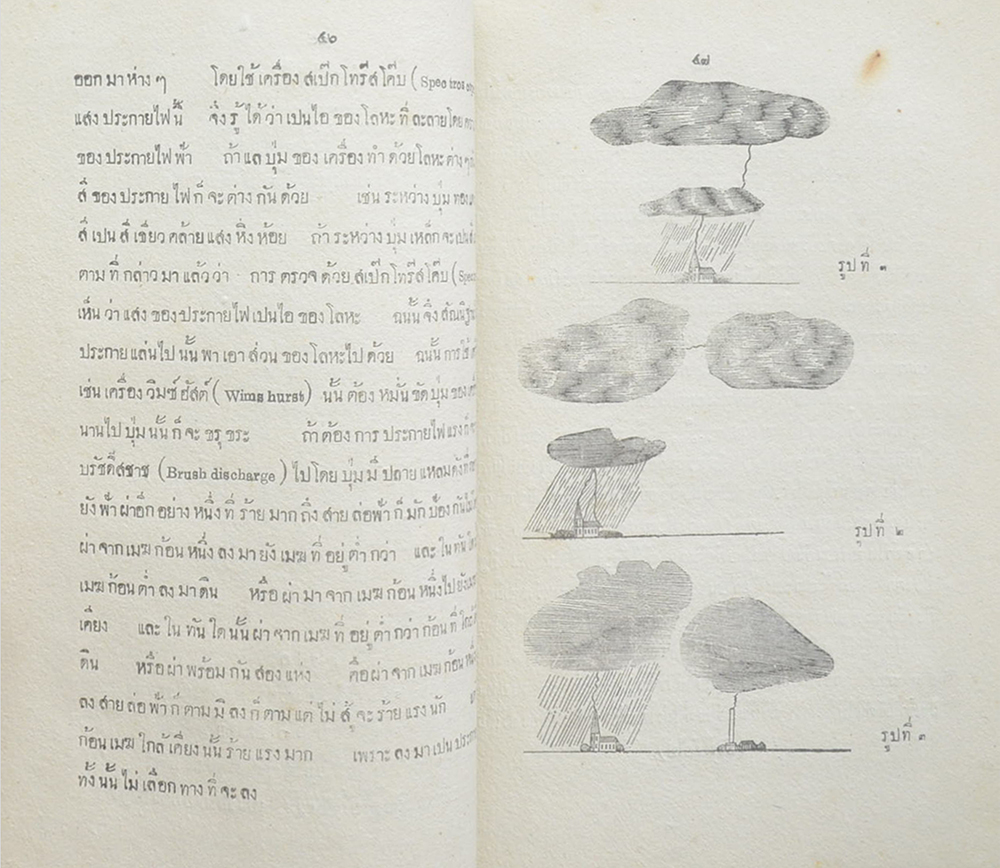 ๕๖
ออกมาห่าง ๆ โดยใช้เครื่องสเป๊กโทรีสโค๊บ (Spectros
แสงประกายไฟนี้ จึ่งรู้ได้ว่าเปนไอของโลหะที่ละลายโดย
ของประกายไฟฟ้า ถ้าแลปุ่มของเครื่องทำด้วยโลหะต่าง ๆ
สีของประกายไฟก็จะต่างกันด้วย เช่นระหว่างปุ่ม
สีเปนสีเขียวคล้ายแสงหิ่งห้อย ถ้าระหว่างปุ่มเหล็กจะเปน
ตามที่กล่าวมาแล้วว่า การตรวจด้วยสเป๊กโทรีสโค๊บ (Spec
เห็นว่าแสงของประกายไฟเปนไอของโลหะ ฉนั้นจึ่งสัณนิฐาน
ประกายแล่นไปนั้นพาเอาส่วนของโลหะไปด้วย ฉนั้นการใช้
เช่นเครื่องวิมซ์ฮัสต์ (Wimshurst) นั้นต้องหมั่นขัดปุ่มของ
นานไปปุ่มนั้นก็จะขรุขระ ถ้าต้องการประกายไฟแรงก็
บรัชดิ๊สชาช (Brush discharge) ไปโดยปุ่มมีปลายแหลมดังที่
ยังฟ้าผ่าอีกอย่างหนึ่งที่ร้ายมากถึงสายล่อฟ้าก็มักป้องกันไม่
ผ่าจากเมฆก้อนหนึ่งลงมายังเมฆที่อยู่ต่ำกว่า และในทันใด
เมฆก้อนต่ำลงมาดิน หรือผ่ามาจากเมฆก้อนหนึ่งไปยัง
เคียง และในทันใดนั้นผ่าจากเมฆที่อยู่ต่ำกว่าก้อนที่ใกล้
ดิน หรือผ่าพร้อมกันสองแห่ง คือผ่าจากเมฆก้อนหนึ่ง
ลงสายล่อฟ้าก็ตามมิลงก็ตามแต่ไม่สู้จะร้ายแรงนัก
ก้อนเมฆใกล้เคียงนั้นร้ายแรงมาก เพราะลงมาเปนประกาย
ทั้งนั้นไม่เลือกทางที่จะลง
๕๗
รูปที่ ๑
รูปที่ ๒
รูปที่ ๓